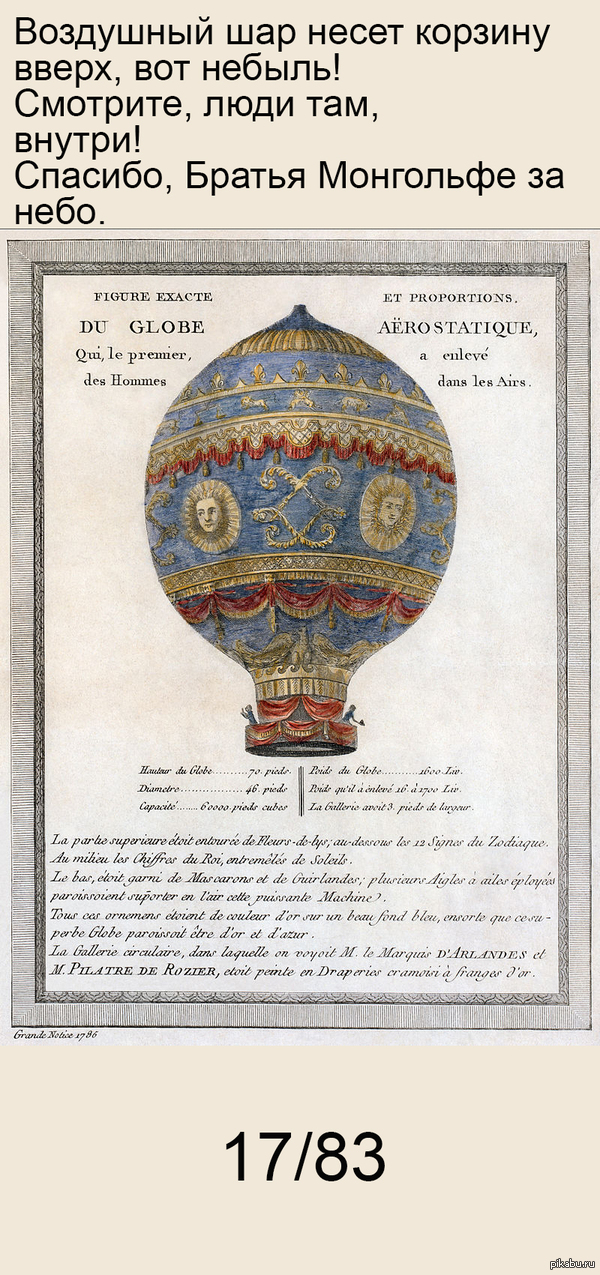 Воздушный шар несет корзину
вверх, вот небыль!
Смотрите, люди там,
внутри!
Спасибо, Братья Монгольфе за
небо.
FIGURE EXACTE ET PROPORTIONS.
DU GLOBE AËROSTATIQUE,
Qui, le premier, a enlevé
des Hommes dans les Airs.
Hauteur du Globe..........70. pieds.
Diametre.................46. pieds
Capacité.......60000. pieds cubes
Poids du Globe..........1600. Liv.
Poids qu'il à enlevé 16. à 1700 Liv.
La Gallerie avoit 3. pieds de largeur.
La partie superieure étoit entourée de Fleurs-de-lys; au-dessous les 12 Signes du Zodiaque.
Au milieu les Chiffres du Roi, entremêlés de Soleils.
Le bas, étoit garni de Mascarons et de Guirlandes; plusieurs Aigles à ailes éployées
paroissoient suporter en l'air cette puissante Machine).
Tous ces ornemens étoient de couleur d'or sur un beau fond bleu, ensorte que ce su-
perbe Globe paroissoit être d'or et d'azur.
La Gallerie circulaire, dans laquelle on voyoit M. le Marquis D'ARLANDES et
M. PILATRE DE ROZIER, etoit peinte en Draperies cramoisi à franges d'or.
Grande Notice 1786
17/83
pikabu.ru